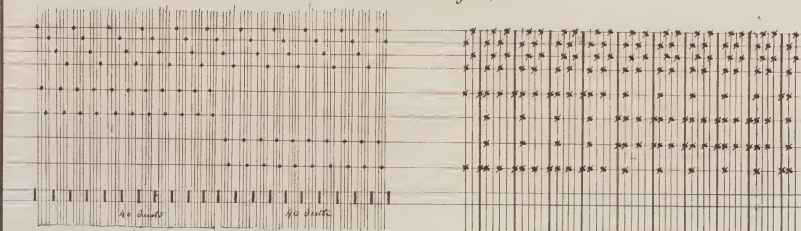 40 Dents 40 Dents